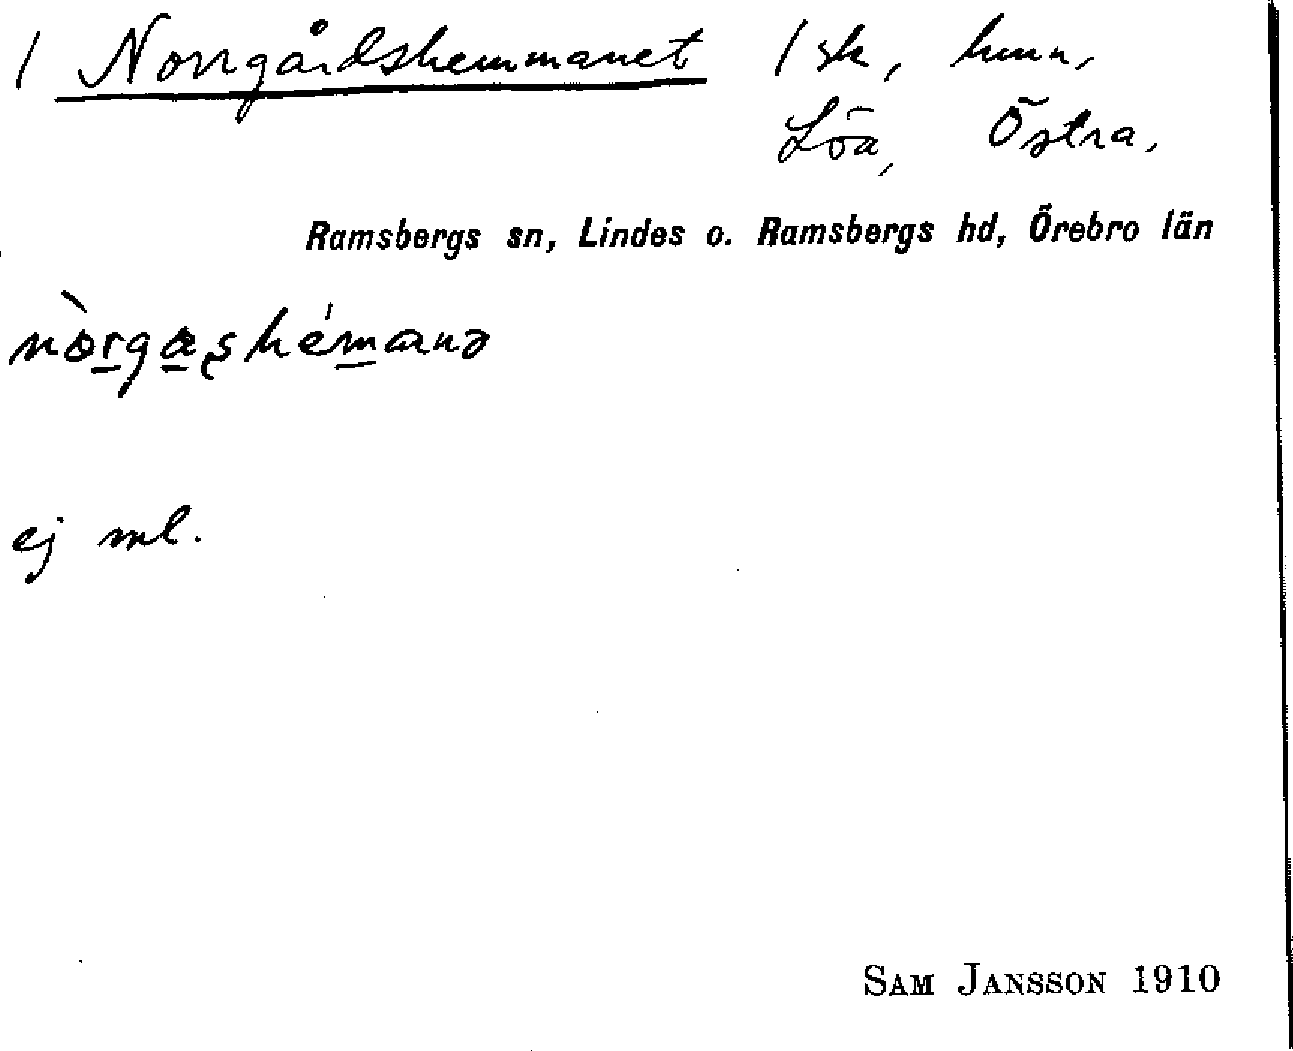 / Norrgårdshemmanet / sk, hmn,
Löa, Östra.
Ramsbergs sn, Lindes o. Ramsbergs hd, Örebro län
ej ml.
SAM JANSSON 1910